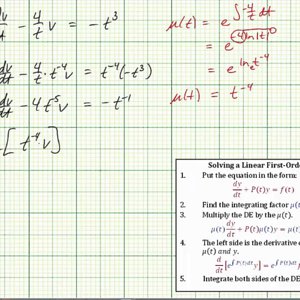 dv/dt - 4/t v = -t³
μ(t) = e^∫-4/t dt
= e^-4ln|t|
dv/dt - 4/t · t⁻⁴v = t⁻⁴(-t³)
= e^ln_e t⁻⁴
dv/dt - 4t⁵v = -t⁻¹
μ(t) = t⁻⁴
[t⁻⁴v]
Solving a Linear First-Ord
1. Put the equation in the form:
dy/dt + P(t)y = f(t)
2. Find the integrating factor μ(t
3. Multiply the DE by the μ(t).
μ(t) dy/dt + P(t)μ(t)y = μ(t)
4. The left side is the derivative
μ(t) and y.
d/dt [e^∫P(t)dt y] = e^∫P(t)dt f
5. Integrate both sides of the DE